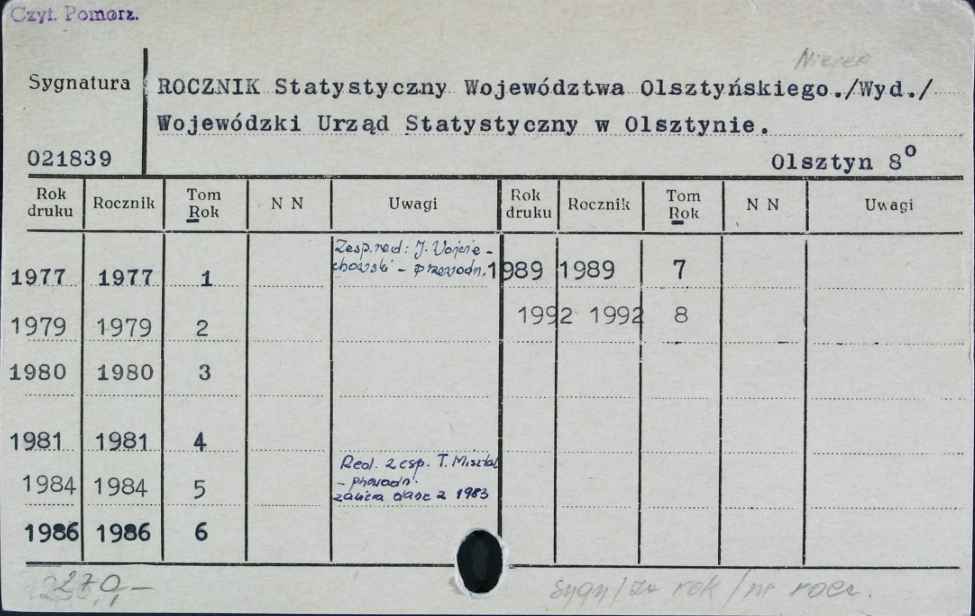 Czyt. Pomorz.
Sygnatura
021839
ROCZNIK Statystyczny Województwa Olsztyńskiego./Wyd./
Wojewódzki Urząd Statystyczny w Olsztynie.
Olsztyn 8⁰
Rok druku Rocznik Tom Rok N N Uwagi Rok druku Rocznik Tom Rok N N Uwagi
Zesp. red: J. Wojcie-
chowski - przewodn.
1977 1977 1 1989 1989 7
1979 1979 2 1992 1992 8
1980 1980 3
1981 1981 4
Red. zesp. T.
- przewodn.
1984 1984 5
z 1983
1986 1986 6
270,-
sygn/za rok/nr rocz.